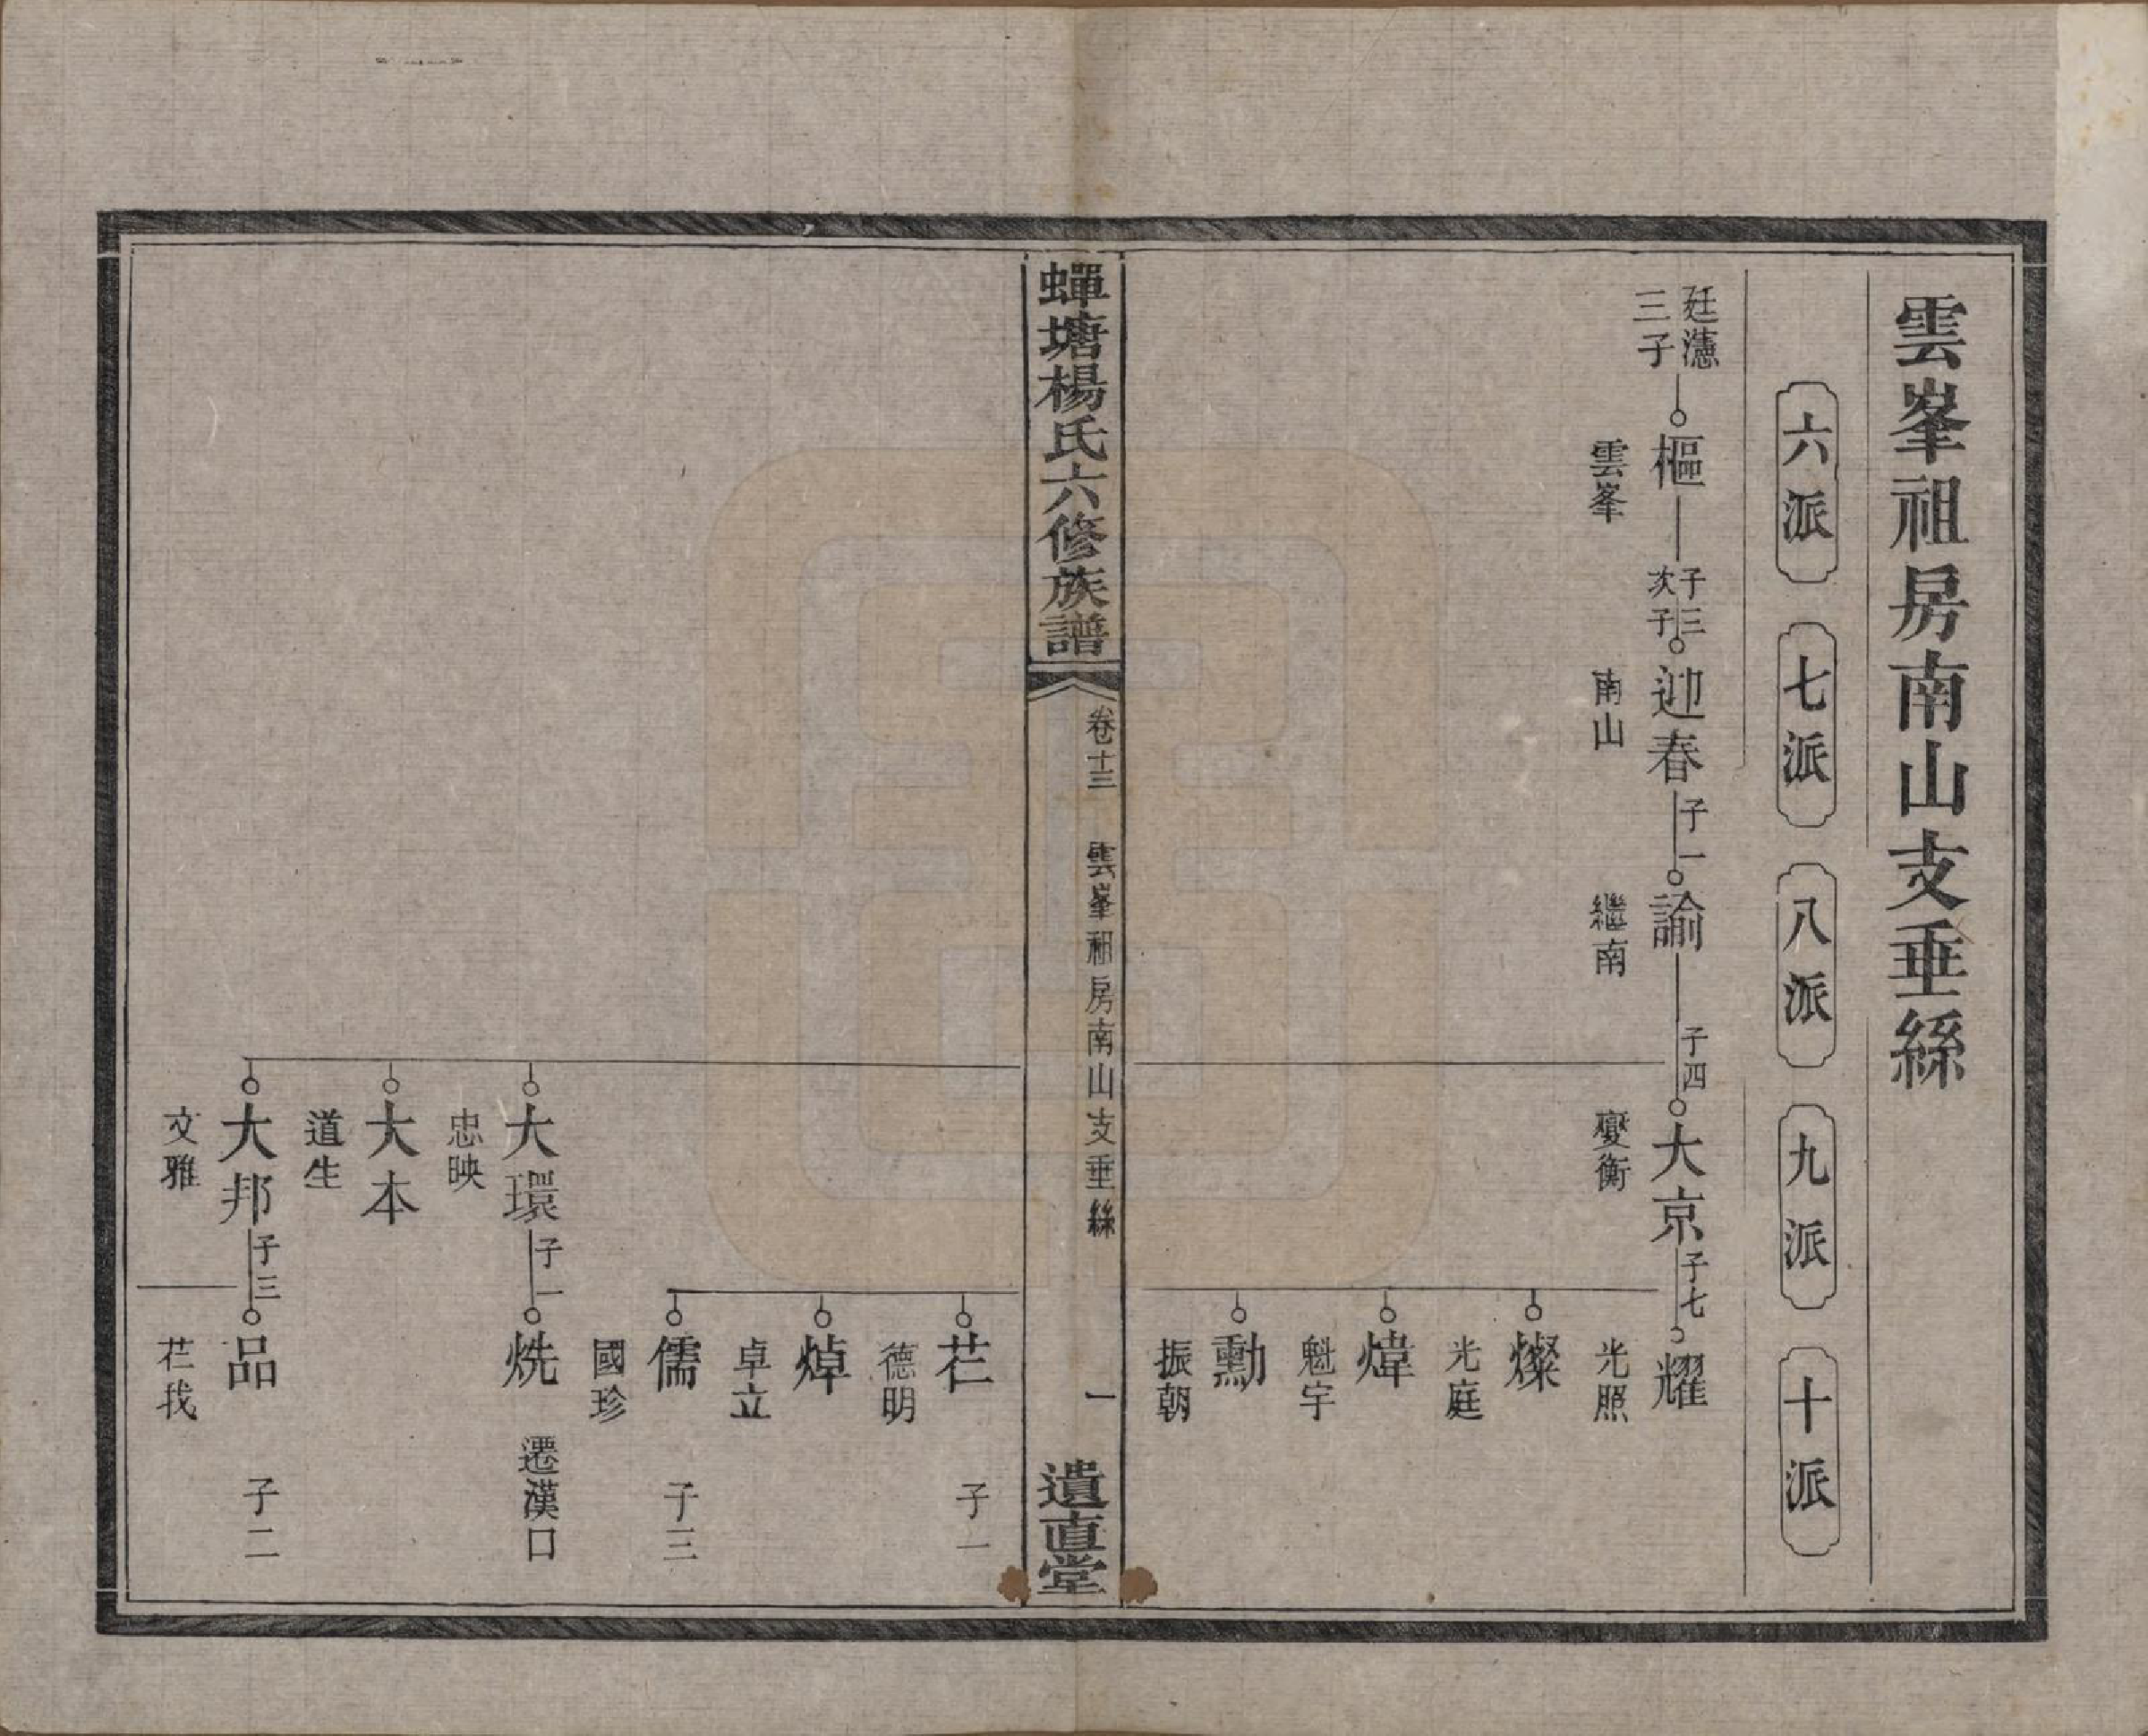 雲峯祖房南山支垂絲
六派
七派
八派
九派
十派
廷藼
三子
樞
雲峯
子三
次子
迎春
南山
子一
諭
繼南
子四
大京
變衡
子七
耀
光照
燦
光庭
煒
魁宇
勳
振朝
蟬塘楊氏六修族譜
卷十三
雲峯祖房南山支垂絲
一
遺直堂
芢
德明
子一
焯
卓立
儒
國珍
子三
大環
忠映
子一
烍
遷漢口
大本
道生
大邦
文雅
子三
品
芢我
子二